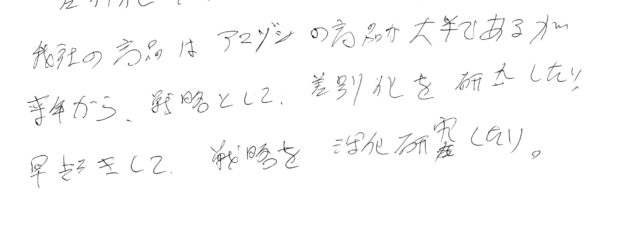 我社の商品はアマゾンの商品が大半であるが
来年から、戦略として、差別化を研究したり
早起きして、戦略を 研究したり。